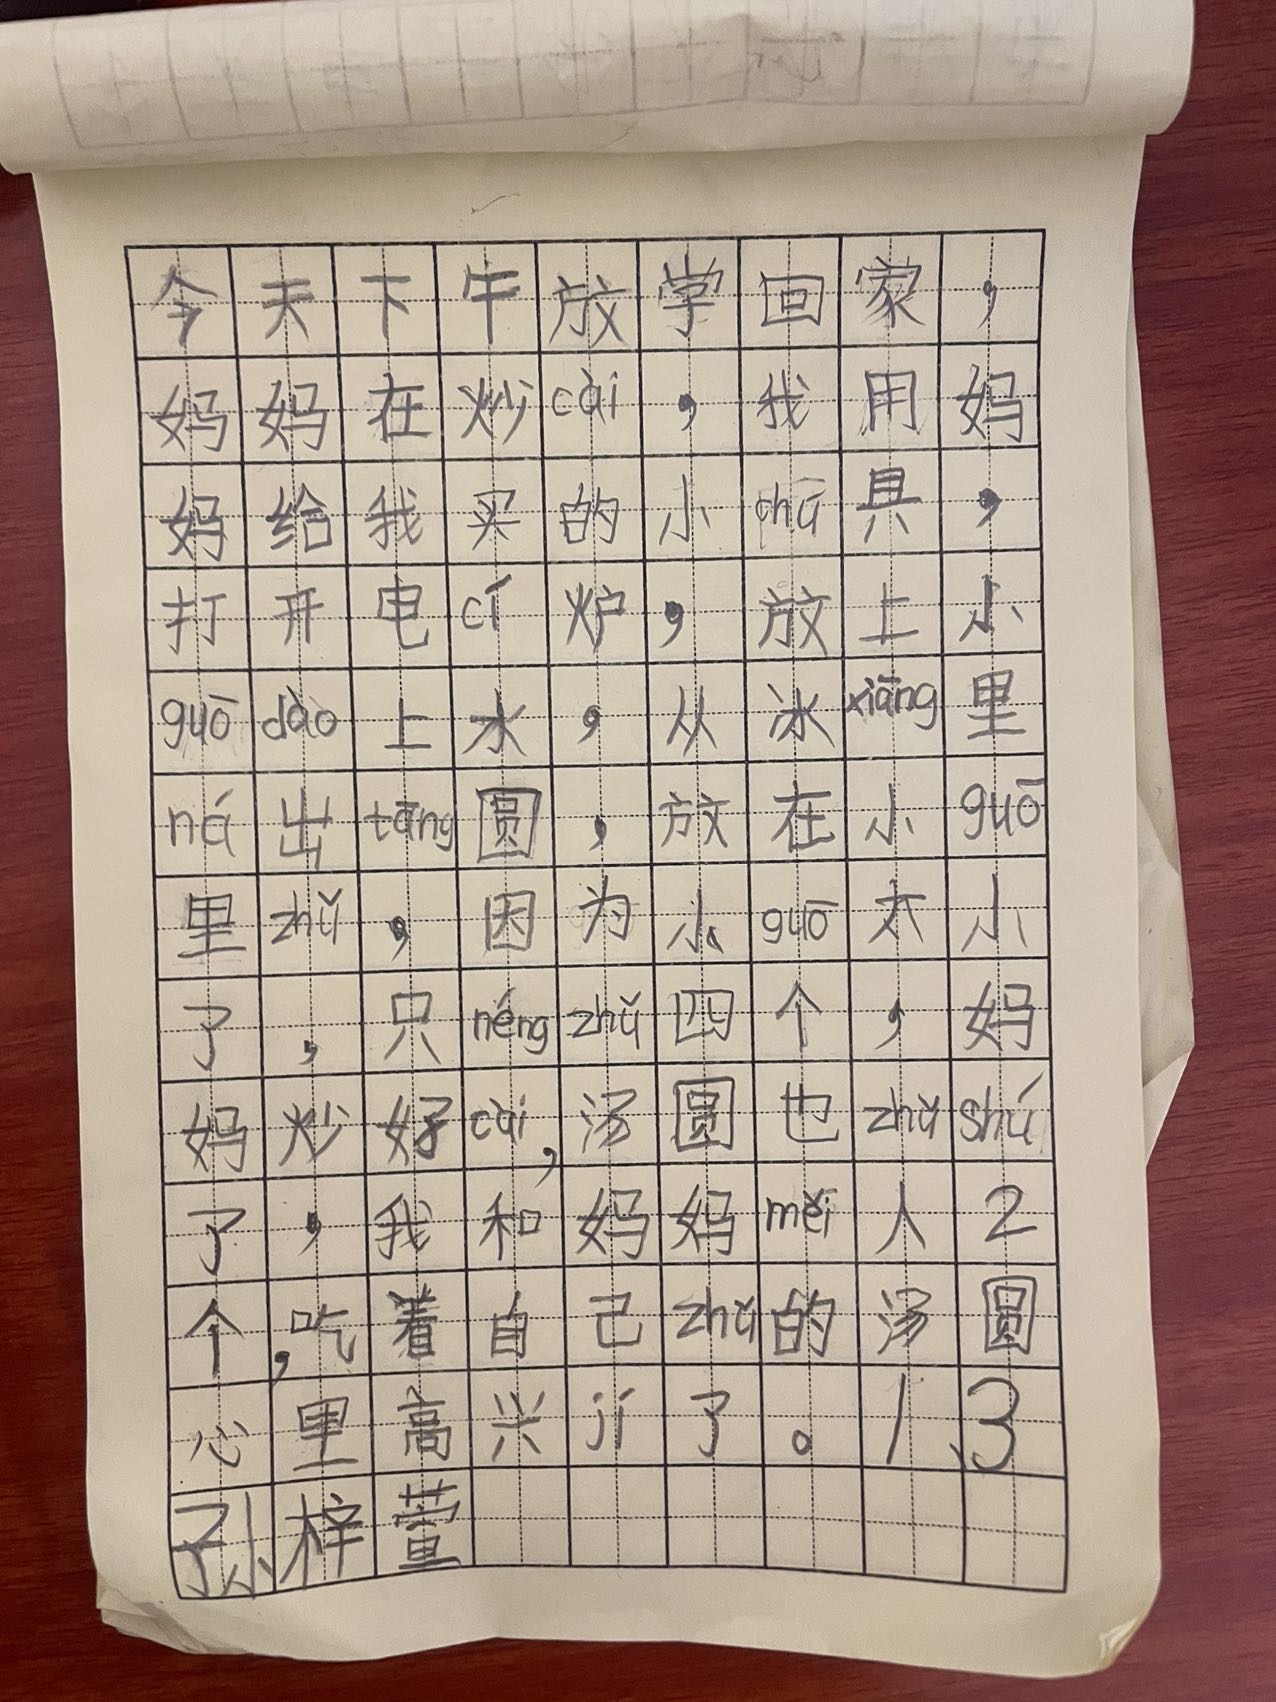 今天下午放学回家，
妈妈在炒cài，我用妈
妈给我买的小chū具，
打开电cí炉，放上小
guō dào上水，从冰xiāng里
ná出tāng圆，放在小guō
里zhǔ，因为小guō太小
了，只néng zhǔ四个，妈
妈炒好cài，汤圆也zhǔ shú
了，我和妈妈měi人2
个，吃着自己zhǔ的汤圆
心里高兴jí了。1、3
孙梓萱